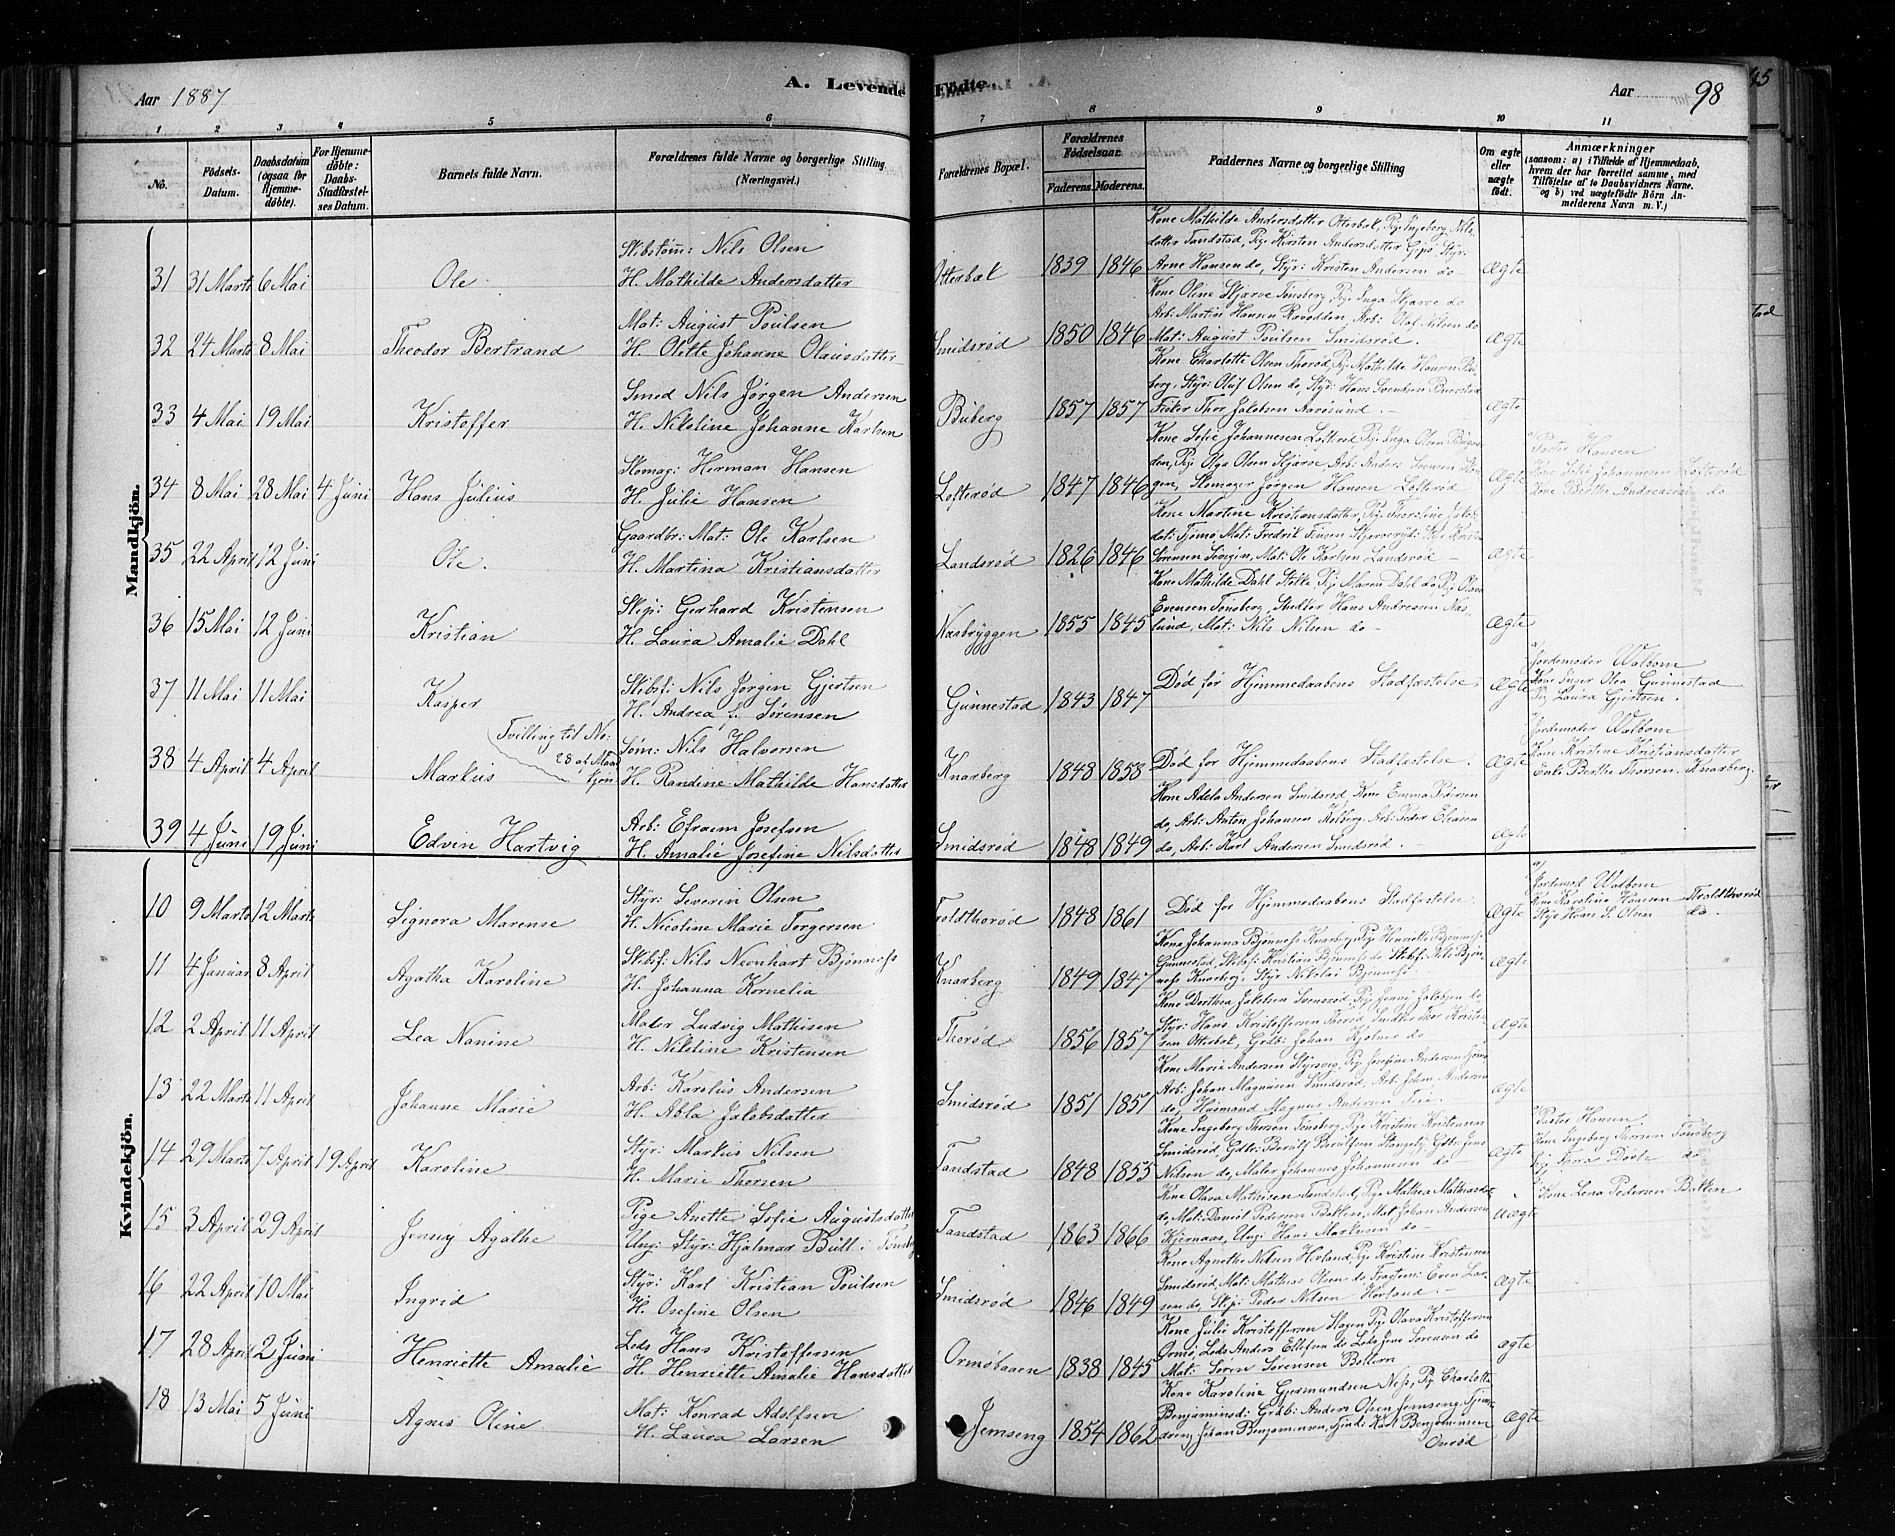 Aar 1887
A. Levende Fødte.
Aar 98
1 2 3 4 5 6 7 8 9 10 11
No.
Födsels-Datum.
Daabsdatum (ogsaa for Hjemmedöbte).
For Hjemmedöbte: Daabs-Stadfæstelses Datum.
Barnets fulde Navn.
Forældrenes fulde Navne og borgerlige Stilling. (Næringsvei.)
Forældrenes Bopæl.
Forældrenes Födselsaar.
Faderens. Moderens.
Faddernes Navne og borgerlige Stilling
Om ægte eller uægte födt.
Anmærkninger
(saasom: a) i Tilfælde af Hjemmedaab, hvem der har forrettet samme, med Tilföielse af to Daabsvidners Navne, og b) ved uægtefödte Börn Anmelderens Navn m. V.)
Mandkjön.
31 31 Marts 6 Mai Ole
Skibstøm: Nils Olsen
H. Mathilde Andersdatter
Otterbæk 1839 1846
Kone Mathilde Andersdatter Otterbæk, Pige Ingeborg Nilsdatter Tandstad, Pige Kirsten Andersdatter Gipø, Styr: Arne Hansen do, Styr: Kristen Andersen do
Ægte
32 24 Marts 8 Mai Theodor Bertrand
Mat: August Poulsen
H. Olette Johanne Olausdatter
Smidsrød 1850 1846
Kone Oline Skjærve Tønsberg, Pige Inga Skjærve do
Arb: Martin Hansen Ravødden, Arb: Olaf Nilsen do
Mat: August Poulsen Smidsrød.
Ægte
33 4 Mai 19 Mai Kristoffer
Smed Nils Jørgen Andersen
H. Nikoline Johanne Karlsen
Buberg 1857 1857
Kone Charlotte Olsen Thorød, Pige Mathilde Hansen Buberg, Styr: Oluf Olsen do, Styr: Hans Svendsen Buerstad
Fisker Thor Jakobsen Narøsund.
Ægte
34 8 Mai 28 Mai 4 Juni Hans Julius
Skomag: Herman Hansen
H. Julie Hansen
Lofterød 1847 1846
Kone Sofie Johannesen Lofterød, Pige Inga Olsen
Pige Olga Olsen Skjærve, Arb: Anders
Skomager Jørgen Hansen Lofterød
Ægte
Pastor Hansen
Kone Sofie Johannesen Lofterød
Kone Berthe Andreasen do
35 22 April 12 Juni Ole.
Gaardbr: Mat: Ole Karlsen
H. Martina Kristiansdatter
Landsrød 1826 1846
Kone Martine Kristiansdatter, Pige Thorstine
Tjømø, Mat: Fredrik
Mat: Ole Karlsen Landsrød
Ægte
36 15 Mai 12 Juni Kristian
Skip: Gerhard Kristensen
H. Laura Amalie Dahl
Næsbryggen 1855 1845
Kone Mathilde Dahl Stokke, Pige Maren Dahl do, Pige Olava Evensen Tønsberg, Snedker Hans Andresen
Mat: Nils Nilsen do
Ægte
37 11 Mai 11 Mai Kasper
Skibsf: Nils Jørgen Gjertsen
H. Andrea f. Sørensen
Gunnestad 1843 1847
Død før Hjemmedaabens Stadfæstelse.
Ægte
a/ Jordemoder Walbom
Kone Inger Olea Gunnestad
Pig Laura Gjertsen.
38 4 April 4 April Markus
Tvilling til No: 28 af Mandkjøn
Søm: Nils Halvorsen
H. Randine Mathilde Hansdatter
Knarberg 1848 1858
Død før Hjemmedaabens Stadfæstelse.
Ægte
Jordemoder Walbom
Kone Kristine Kristiansdatter
Enke Berthe Thorsen. Knarberg.
39 4 Juni 19 Juni Edvin Hartvig
Arb: Efraim Josefsen
H. Amalie Josefine Nilsdatter
Smidsrød 1848 1849
Kone Adela Andersen Smidsrød, Kone Emma
do, Arb: Anton Johansen Kolberg, Arb: Peder Eliasen
do, Arb: Karl Andersen Smidsrød.
Ægte
Kvindekjön.
10 9 Marts 12 Marts Signora Marense
Styr: Severin Olsen
H. Nicoline Marie Torgersen
Troldthorød 1848 1861
Død før Hjemmedaabens Stadfæstelse.
Ægte
a/ Jordemod Walbom
Kone Karoline Hansen Troldthorød
Styr Hans S. Olsen do.
11 4 Januar 8 April Agatha Karoline
Skibsf: Nils Neonhart Bjønness
H. Johanna Kornelia
Knarberg 1849 1847
Kone Johanna Bjønness Knarberg, Pige Henriette Bjønness
Gunnestad, Skibsf: Kristian Bjønness do, Skibsf: Nils Bjønness Knarberg. Styr Nikolai Bjønness.
Ægte
12 2 April 11 April Lea Nanine
Maler Ludvig Mathisen
H. Nikoline Kristensen
Thorød 1856 1857
Kone Dorthea Jakobsen Svensrød, Pige Jenny Jakobsen do,
Styr: Hans Kristoffersen Thorød, Snedker Thor Kristensen Otterbæk, Grdb: Johan Kjølner do
Ægte
13 22 Marts 11 April Johanne Marie
Arb: Karolus Andersen
H. Abla Jakobsdatter
Smidsrød 1851 1851
Kone Marie Andersen Styrsvig, Pige Josefine Andersen
Arb: Johan Magnusen Smidsrød, Arb: Johan Andersen
do, Husmand Magnus Andersen
Ægte
14 29 Marts 7 April 19 April Karoline
Styr: Markus Nilsen
H. Marie Thorsen
Tandstad 1848 1855
Kone Ingeborg Thorsen Tønsberg, Pige Kristine Kristensen
Smidsrød, Gdbr: Berulf Berulfsen Stangeby, Gdbr: Jens
Nilsen do, Maler Johannes Johannesen do
Ægte
a/ Pastor Hansen
Kone Ingeborg Thorsen Tønsberg
Pige Thora Dorte do
15 3 April 29 April Jenny Agathe
Pige Anette Sofie Augustsdatter
Ung: Styr: Hjalmar Bull i Tønsb
Tandstad 1863 1866
Kone Olava Mathisen Tandstad, Pige Mathea Mathiasdat
do, Mat: Daniel Pedersen Bakken, Mat: Johan Andersen
Kjernaas, Ung: Hans Markusen do
Uægte
Kone Lena Pedersen Bakken
16 22 April 10 Mai Ingrid
Styr: Karl Kristian Poulsen
H. Josefine Olsen
Smidsrød 1846 1849
Kone Agnethe Nilsen Hovland, Pige Kristine Kristensen
Smidsrød, Mat: Mathias Olsen do, Fragtem: Even Larsen do, Skip: Peder Nilsen Hovland.
Ægte
17 28 April 2 Juni Henriette Amalie
Lods Hans Kristoffersen
H. Henriette Amalie Hansdatter
Ormøbaaen 1838 1845
Kone Julie Kristoffersen Slagen, Pige Olava Kristoffersen
Ormø, Lods Anders Ellefsen do, Lods Jens Sørensen do
Mat: Søren Sørensen Bollern
Ægte
18 13 Mai 5 Juni Agnes Oline
Mat: Konrad Adolfsen
H. Laura Larsen
Jemseng 1854 1862
Kone Karoline Gjermundsen Ness, Pig Charlotte
Benjaminsd: Grdb: Anders Olsen Jemseng,
Johan Benjaminsen, Karl Benjaminsen
Ægte